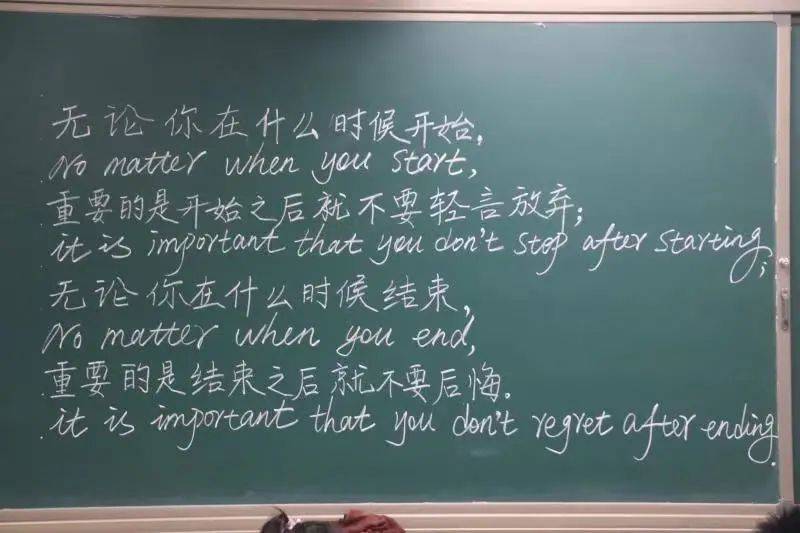 无论你在什么时候开始,
No matter when you start,
重要的是开始之后就不要轻言放弃;
it is important that you don't stop after starting;
无论你在什么时候结束,
No matter when you end,
重要的是结束之后就不要后悔.
it is important that you don't regret after ending.